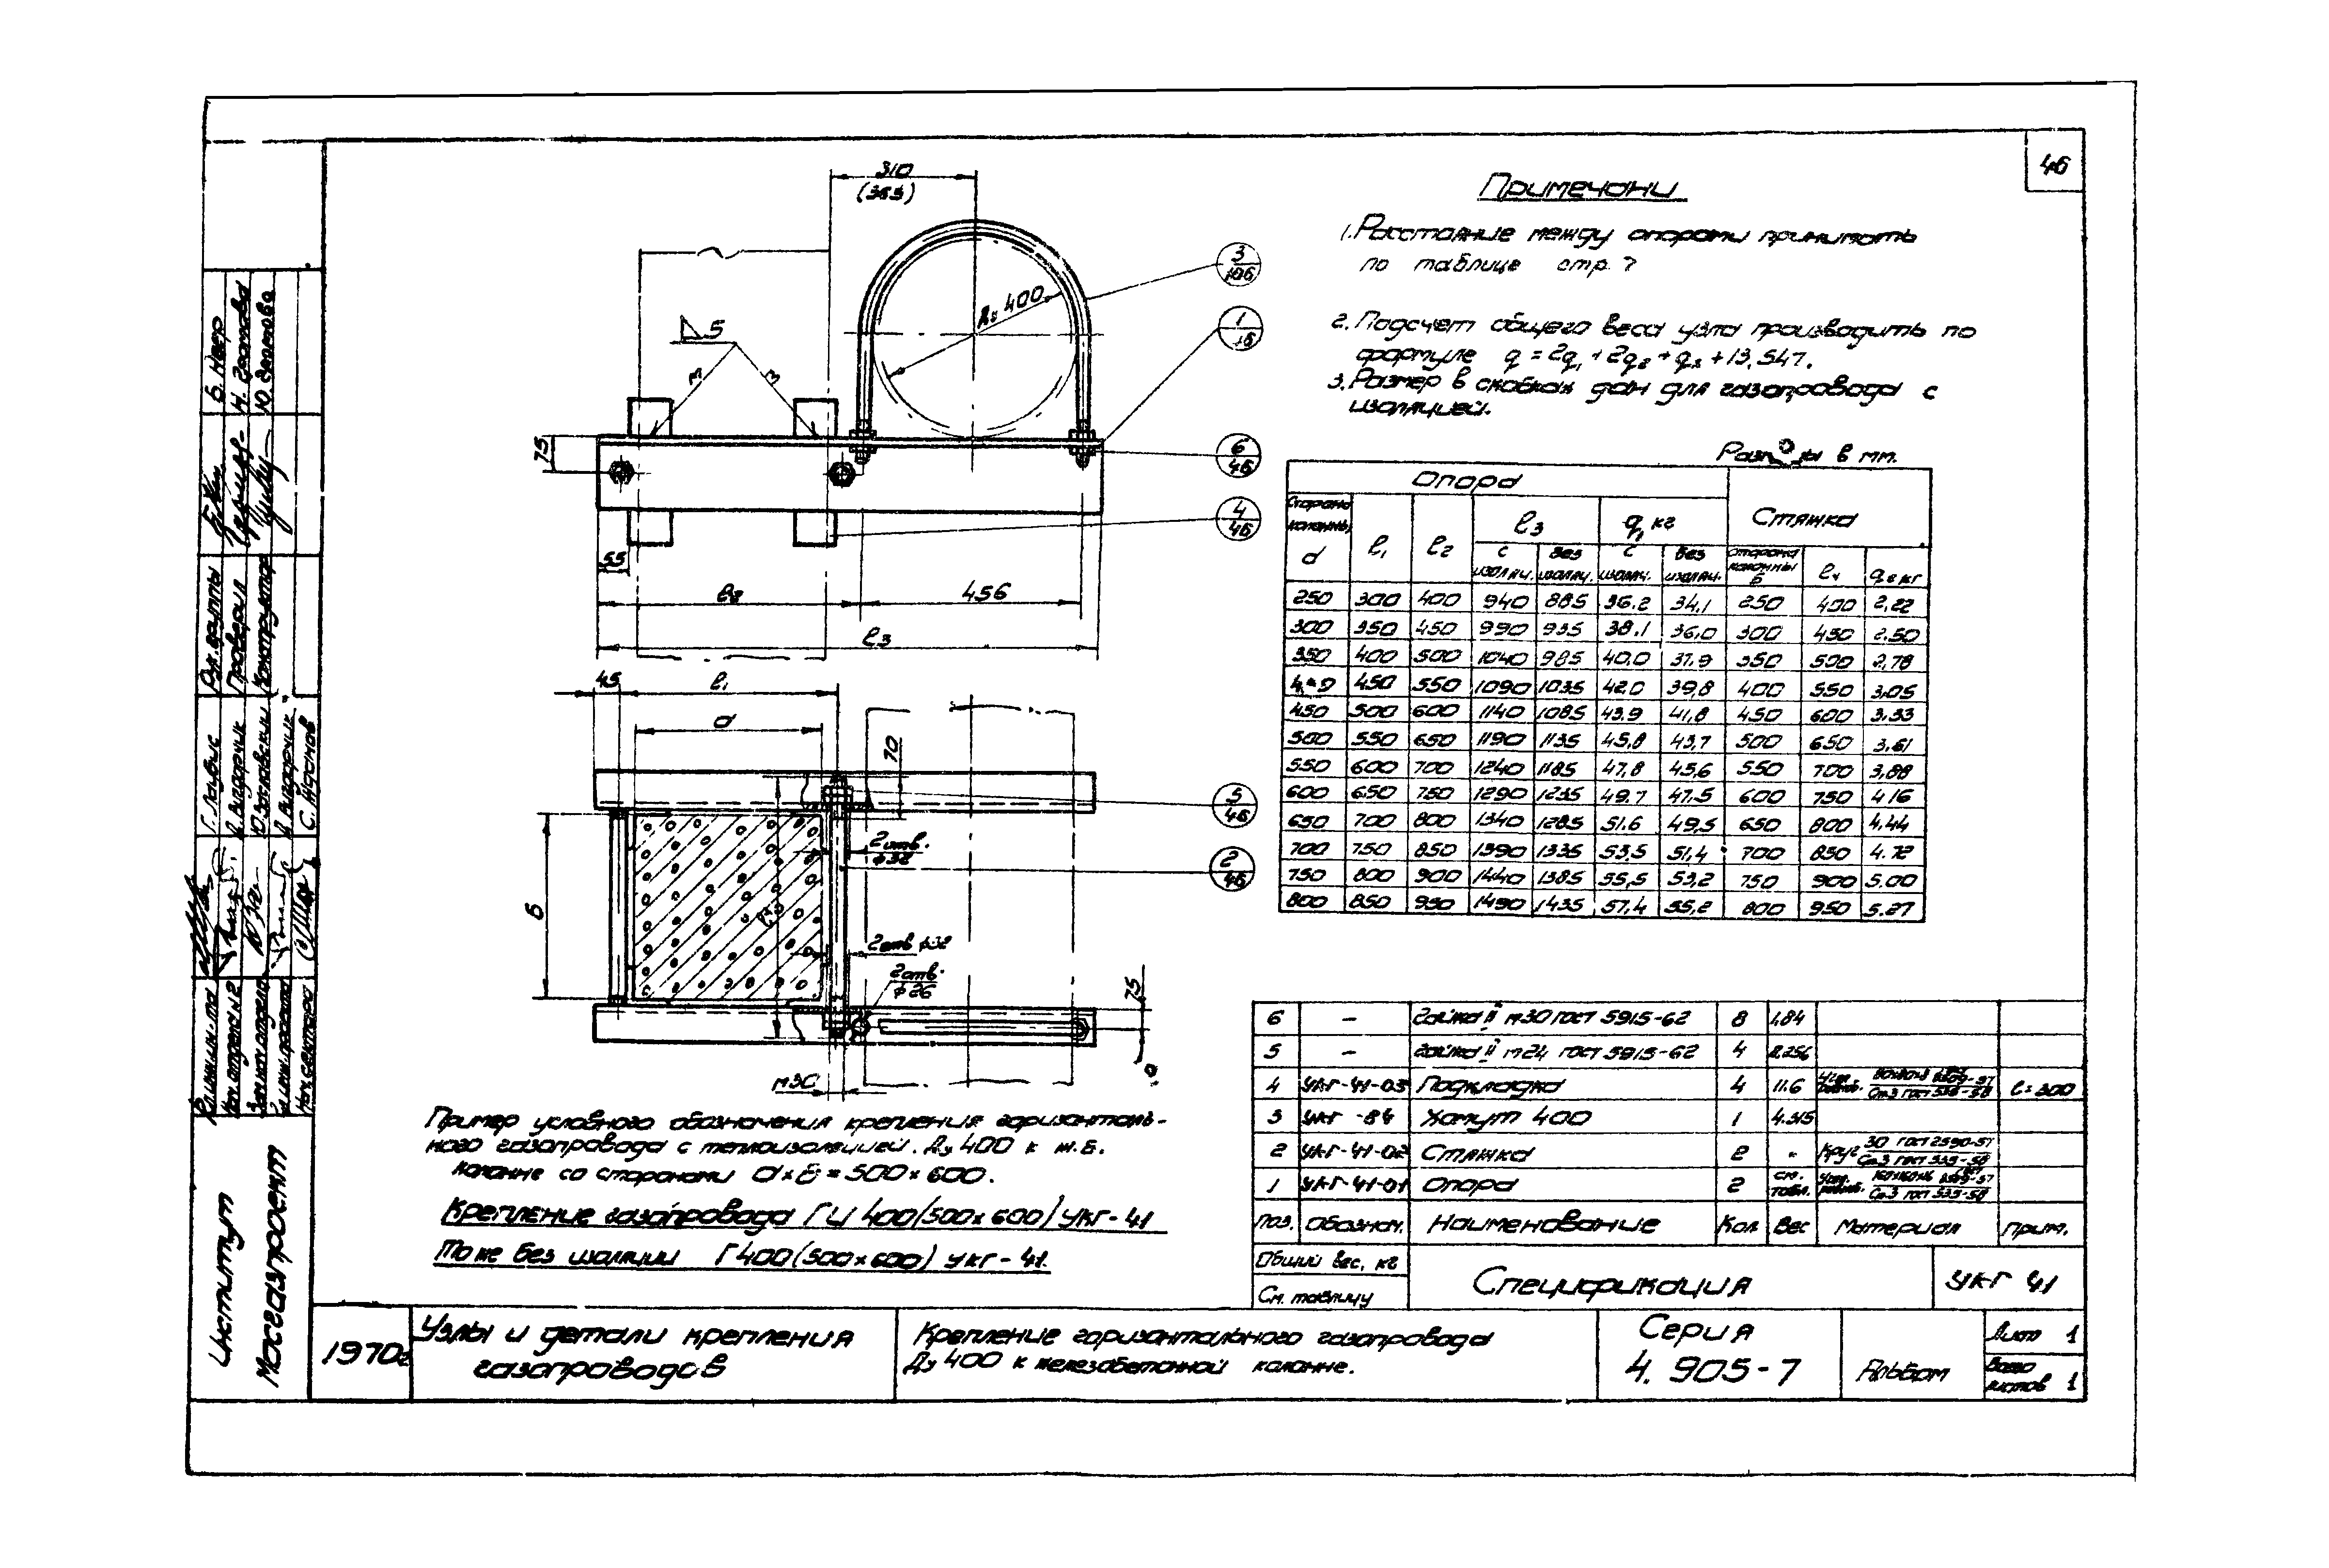 46
310
(365)
Примечани
1. Расстояние между опорами принимать
по таблице стр. 7
2. Подсчет общего веса узла производить по
формуле
3. Размер в скобках дан для газопровода с
изоляцией.
Ду 400
3
106
1
6
46
4
46
5
46
2
46
5
75
55
l2
456
l3
45
l1
а
70
Б
2 отв.
ф32
2 отв ф32
2 отв.
ф26
М30
75
в мм.
Опора
Стяжка
Сторона колонны а
l1
l2
l3
q1 кг
с изоляц.
без изоляц.
с изоляц.
без изоляц.
Сторона колонны Б
l4
кг
250 300 400 940 885 36.2 34,1 250 400 2,22
300 350 450 990 935 38.1 36,0 300 450 2.50
350 400 500 1040 985 40.0 37.9 350 500 2,78
450 550 1090 1035 42.0 39,8 400 550 3,05
450 500 600 1140 1085 43.9 41,8 450 600 3.33
500 550 650 1190 1135 45,8 43,7 500 650 3.61
550 600 700 1240 1185 47,8 45,6 550 700 3,88
600 650 750 1290 1235 49.7 47.5 600 750 4.16
650 700 800 1340 1285 51.6 49,5 650 800 4,44
700 750 850 1390 1335 53,5 51,4 700 850 4.72
750 800 900 1440 1385 55,5 53,2 750 900 5.00
800 850 950 1490 1435 57,4 55,2 800 950 5.27
6 – Гайка II М30 ГОСТ 5915-62 8 1,84
5 – Гайка II М24 ГОСТ 5915-62 4 0.256
4 УКГ-41-03 Подкладка 4 11.6 Ст.3 ГОСТ 535-58 l=300
3 УКГ-84 Хомут 400 1 4.315
2 УКГ-41-02 Стяжка 2 " Круг 30 ГОСТ 2590-57 Ст.3 ГОСТ 535-58
1 УКГ-41-01 Опора 2 см. табл. Ст.3 ГОСТ 535-58
Поз. Обознач. Наименование Кол. Вес Материал Прим.
Общий вес, кг
См. таблицу
Спецификация
УКГ 41
Пример условного обозначения крепления горизонталь-
ного газопровода с теплоизоляцией. Ду 400 к ж.б.
колонне со сторонами а х Б = 500 х 600.
Крепление газопровода ГИ 400(500х600) УКГ-41
То же без изоляции Г 400(500х600) УКГ-41.
1970г
Узлы и детали крепления
газопроводов
Крепление горизонтального газопровода
Ду 400 к железобетонной колонне.
Серия
4. 905-7
Альбом
Лист 1
Всего
листов 1
Институт
Мосгазпроект
Нач. отдела №2
Нач. сектора
Рук. группы
Проверил
Конструктор